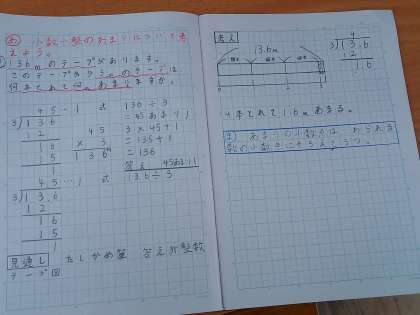 め 小数÷整のあまりについて考
えよう。
13.6mのテープがあります。
このテープから3mのテープは
何本とれて何mあまりますか。
45…1
3)136
12
16
15
1
45
× 3
136
式 136÷3
=45あまり1
3×45+1
=135+1
=136
答え 45あまり1
45…1
3)13.6
12
16
15
1
式 13.6÷3
見通し たしかめ算 答えが整数
テープ図
考え
13.6m
0 1 2 3
4
3)13.6
12
1.6
4本とれて1.6mあまる。
ま あまりの小数点は、わられる
数の小数点にそろえてうつ。